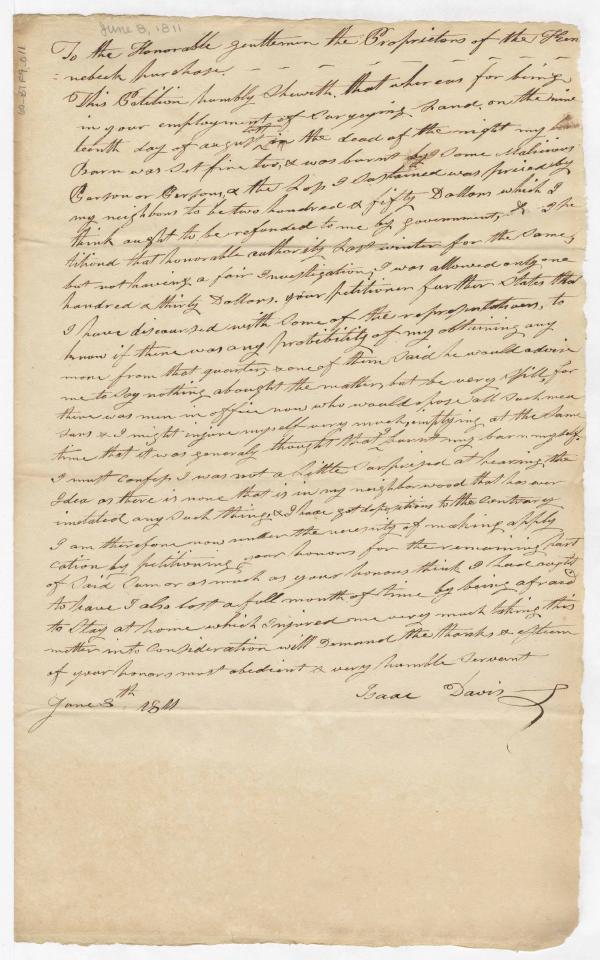 June 8, 1811
To the Honorable gentlemen the Proprietors of the Ken
nebeck purchase. - - - - - - -
This Petition humbly Sheweth, that whereas for being
in your employment of Surveying Land, on the nine
teenth day of august in the dead of the night my
Barn was Set fire too, & was burnt by Some Malicious
Person or Persons, & the Loss I Sustained was prised by
my neighbors to be two hundred & fifty Dollars which I
think aught to be refunded to me by government, & I pe
titiond that honorable authority Last winter for the Same,
but not having a fair Investigation, I was allowed only one
hundred & thirty Dollars. your petitioner further States that
I have discoursed with Some of the representatives, to
know if there was any probibility of my obtaining any
more from that quarter, & one of them Said he would advise
me to Say nothing abought the matter, but be very Still, for
there was men in office now who would opose all Such mea
sures & I might injure myself very much, implying at the Same
time that it was generaly thought that I burnt my barn myself.
I must confess I was not a Little Surprised at hearing the
Idea as there is none that is in my neighborwood that has ever
imetated any Such thing, & I have got depositions to the Contrary
I am therefore now under the necesity of making apply
cation by petitioning your honours for the remaining part
of Said Sum or as much as your honours think I had aught
to have I also lost a full month of time by being afraid
to Stay at home which Injured me very much taking this
matter into Consideration will Demand the thanks & esteem
of your honors most obedient & very humble Servant
Isaac Davis
June 8th 1811